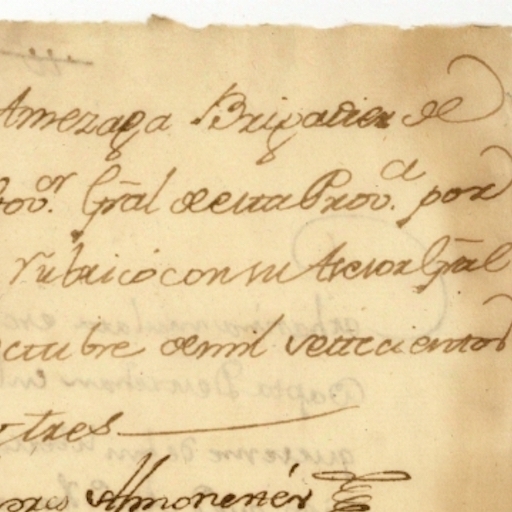 Amezaga Brigadier de
Gov.or Gral de esta Prov.a por
rubricó con su Asesor Gral
octubre de mil settecientos
y tres
Almonerér